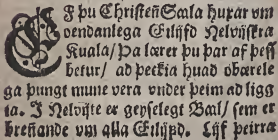 EF þu Christeñ Sæla huxar vm
oendanlega Eilijfd Nelvijtskra
Kuala/ Þa lærer þu þar af þess
betur/ ad þeckia huad obærele
ga þungt mune vera vnder þeim ad ligg
ia. J Nelvijte er geyselegt Bæl/ sem er
breñande vm alla Eilijfd. Lijf þeirra